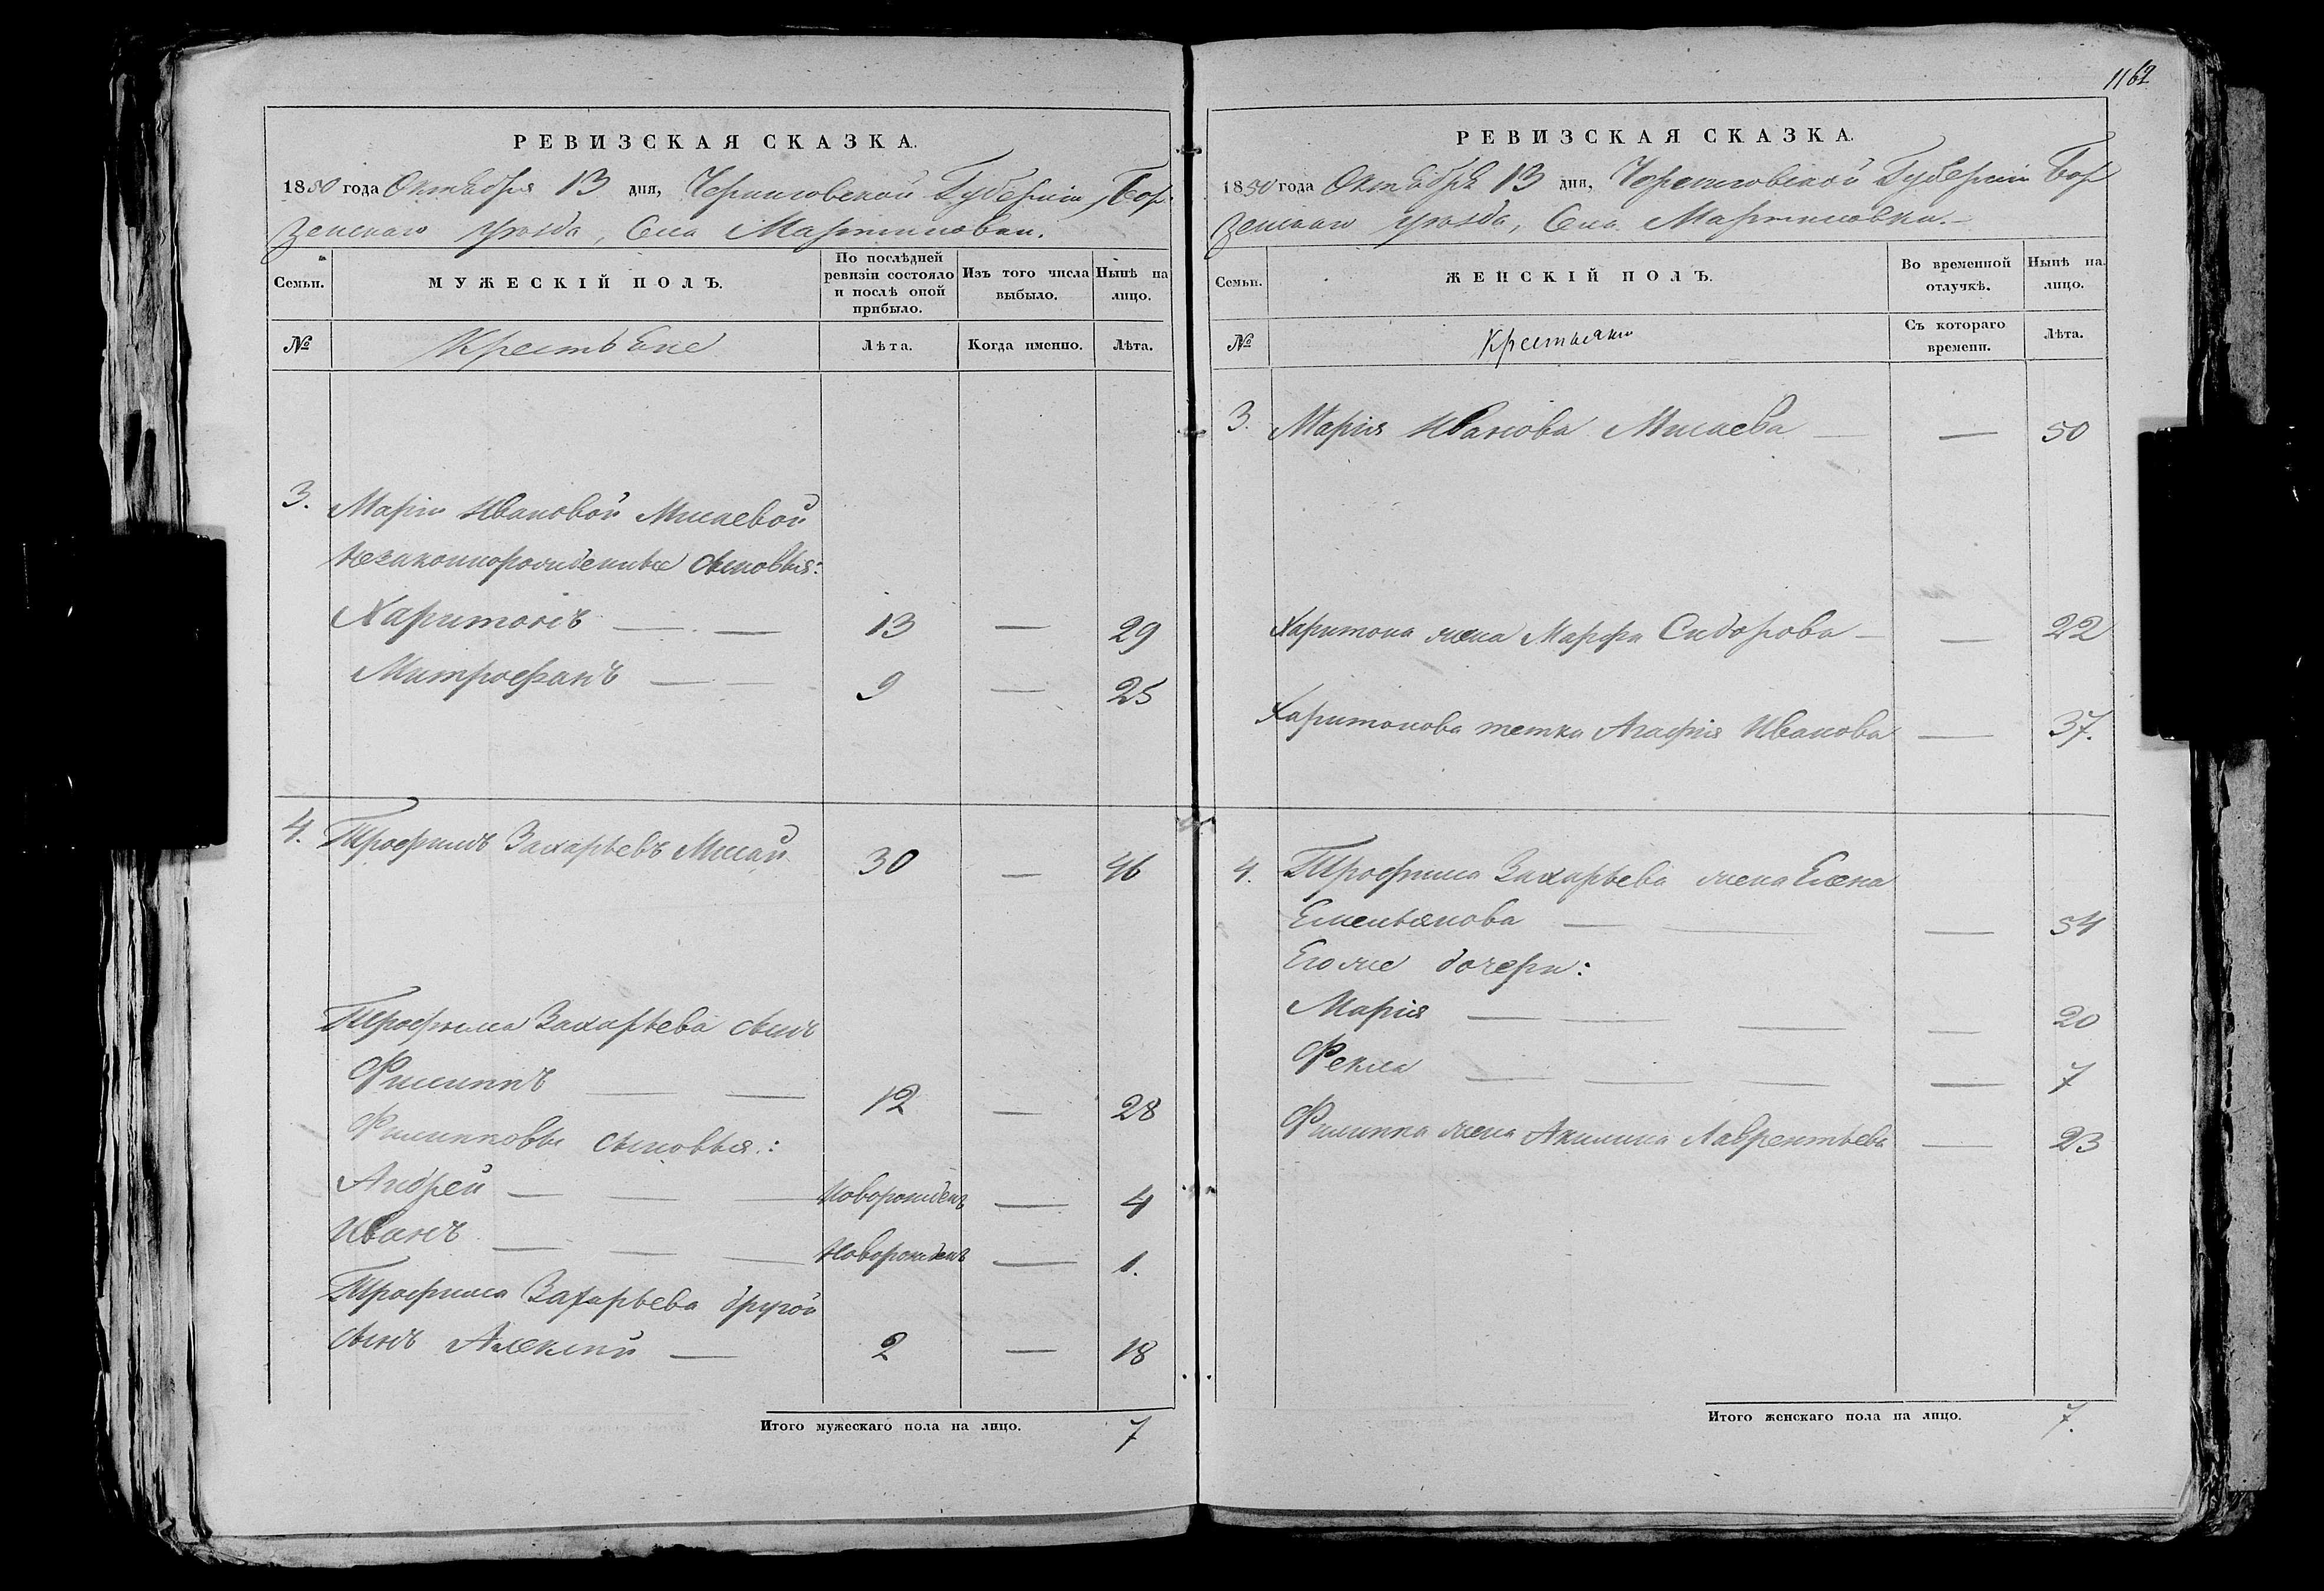 РЕВИЗСКАЯ СКАЗКА.
1850 года Октября 13 дня, Черниговской Губернiи, Бор-
зенскаго уѣзда, Села Мартиновки.
Семьи.
МУЖЕСКІЙ ПОЛЪ.
По послѣдней ревизіи состояло и послѣ оной прибыло.
Изъ того числа выбыло.
Нынѣ на лицо.
№
Крестьяне
Лѣта.
Когда именно.
Лѣта.
3. Маріи Ивановой Мисаевой
незаконнорожденные сыновья:
Харитонъ — — 13 — 29
Митрофанъ — — 9 — 25
4. Трофимъ Захарьевъ Мисай 30 — 46
Трофима Захарьева сынъ
Филиппъ — — 12 — 28
Филипповы сыновья:
Андрей — — — Новорожденъ — 4
Иванъ — — — Новорожденъ — 1.
Трофима Захарьева другой
сынъ Алексий — 2 — 18
Итого мужескаго пола на лицо. 7
1162
РЕВИЗСКАЯ СКАЗКА.
1850 года Октября 13 дня, Черниговской Губернiи Бор
зенскаго уѣзда, Села Мартиновки.—
Семьи.
ЖЕНСКІЙ ПОЛЪ.
Во временной отлучкѣ.
Нынѣ на лицо.
№
Крестьяни
Съ котораго времени.
Лѣта.
3. Марія Иванова Мисаева — — 50
Харитона жена Марфа Сидорова — — 22
Харитонова тетка Агафія Иванова — 37.
4. Трофима Захарьева жена Елена
Емельянова — — — 54
Его же дочери:
Марія — — — — 20
Фекла — — — — 7
Филиппа жена Акилина Лаврентьева — 23
Итого женскаго пола на лицо. 7.